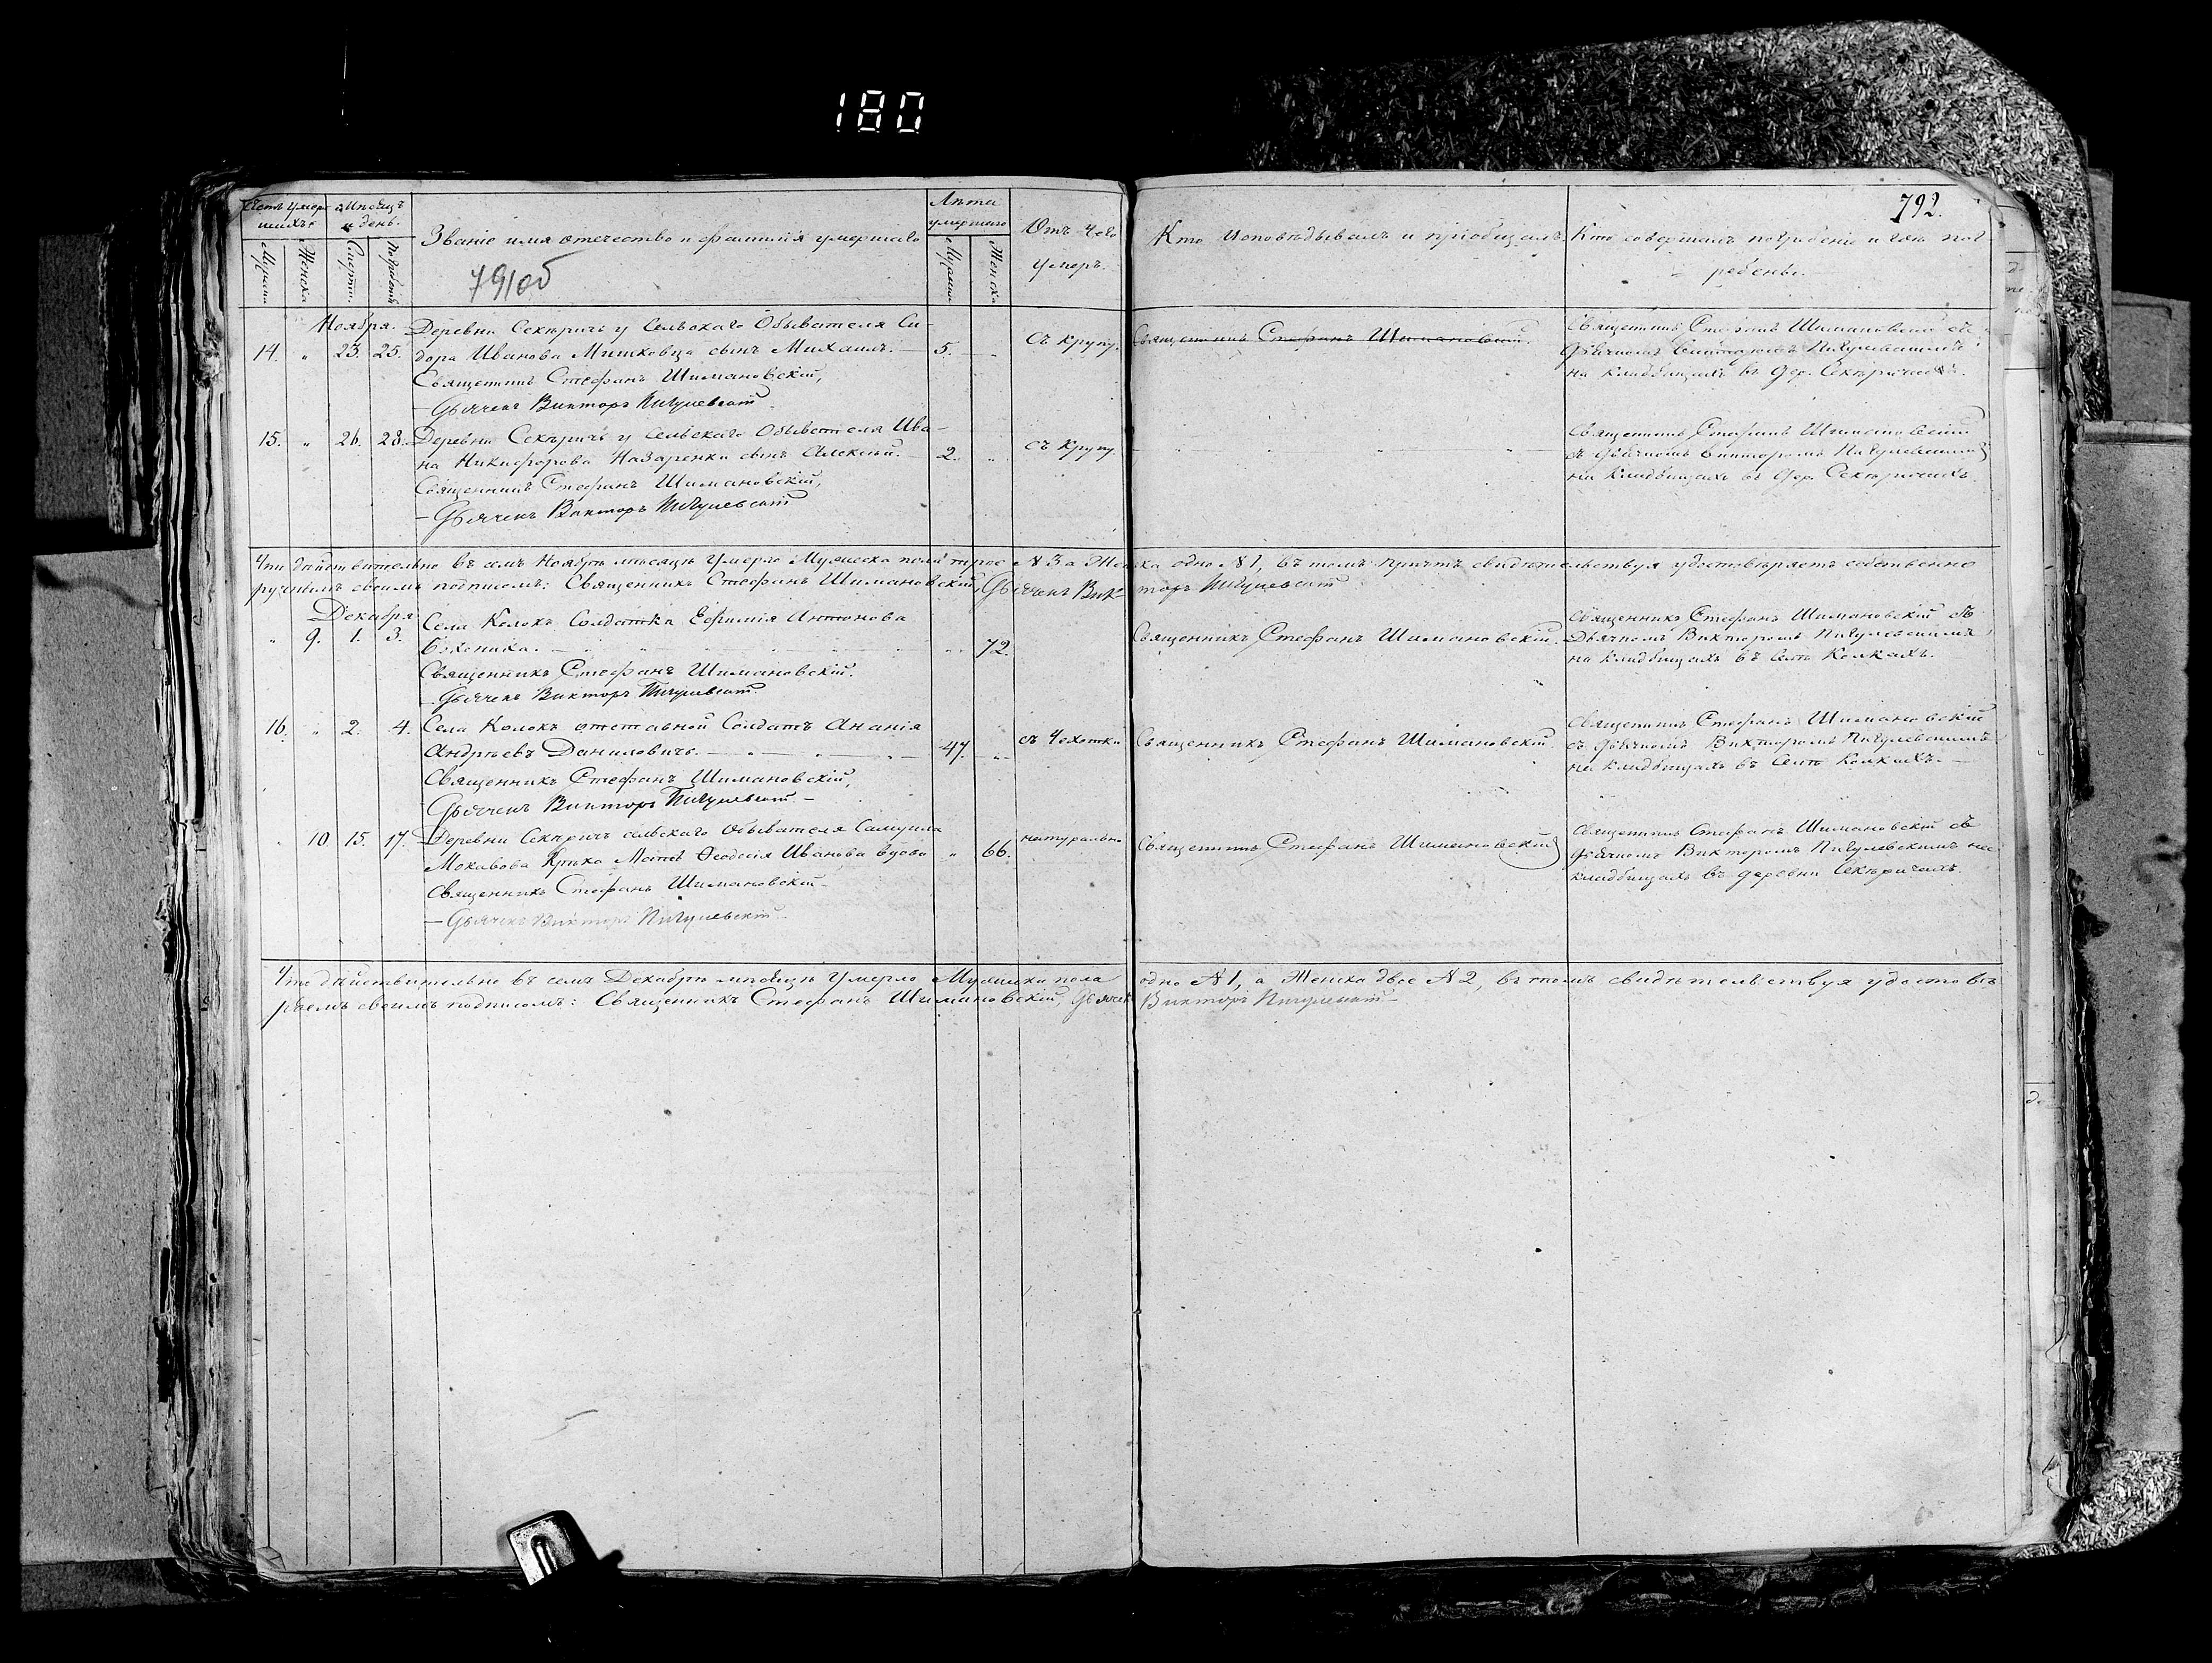 180
792.
791об
Счетъ умершихъ.
Мѣсяцъ и день.
Званіе имя отечество и фамилія умершаго
Лѣта умершаго
Отъ чего умеръ.
Кто исповѣдывалъ и пріобщалъ.
Кто совершалъ погребеніе и гдѣ погребены.
Мужска.
Женска
Смерти.
Погребенія
Мужска
Женска
Ноября.
Деревни Секъричъ у Сельскаго Обывателя Си-
14. " 23. 25. дора Иванова Мишковца сынъ Михаилъ. 5. съ крупу. Священникъ Стефанъ Шимановскій.
Священникъ Стефанъ Шимановскій,
Дьячекъ Викторъ Пигулевскій
Священникъ Стефанъ Шимановскій съ
Дьячкомъ Викторомъ Пигулевскимъ
на кладбищахъ въ дер. Секъричахъ.
15. " 26. 28. Деревни Секъричъ у Сельскаго Обывателя Ива-
на Никифорова Назаренки сынъ Алексѣй. 2. " съ крупу.
Священникъ Стефанъ Шимановскій,
Дьячекъ Викторъ Пигулевскій
Священникъ Стефанъ Шимановскій
съ Дьячкомъ Викторомъ Пигулевскимъ
на кладбищахъ въ дер. Секъричахъ.
Что дѣйствительно въ семъ Ноябрѣ мѣсяцѣ умерло Мужеска пола трое №3 а Женска одно №1, въ томъ причтъ свидѣтельствуя удостовѣряетъ собственно
ручнымъ своимъ подписомъ: Священникъ Стефанъ Шимановскій, Дьячекъ Викторъ Пигулевскій
Декабря
" 9. 1. 3. Села Колокъ Солдатка Евфимія Антонова
72. Священникъ Стефанъ Шимановскій.
Священникъ Стефанъ Шимановскій.
Дьячекъ Викторъ Пигулевскій
Священникъ Стефанъ Шимановскій съ
Дьячкомъ Викторомъ Пигулевскимъ
на кладбищахъ въ селѣ Колкахъ.
16. " 2. 4. Села Колокъ отставной Солдатъ Ананія
Андрѣевъ Даниловичъ. 47. съ чахотки Священникъ Стефанъ Шимановскій
Священникъ Стефанъ Шимановскій,
Дьячекъ Викторъ Пигулевскій
Священникъ Стефанъ Шимановскій
съ Дьячкомъ Викторомъ Пигулевскимъ
на кладбищахъ въ селѣ Колкахъ.
" 10 15. 17. Деревни Секъричъ сельскаго Обывателя Самуила
Мать Ѳеодосія Иванова вдова " 66. натурально Священникъ Стефанъ Шимановскій
Священникъ Стефанъ Шимановскій
Дьячекъ Викторъ Пигулевскій
Священникъ Стефанъ Шимановскій съ
Дьячкомъ Викторомъ Пигулевскимъ на
кладбищахъ въ деревни Секъричахъ.
Что дѣйствительно въ семъ Декабрѣ мѣсяцѣ умерло Мужеска пола одно №1, а Женска двое №2, въ томъ свидѣтельствуя удостовѣ
ряемъ своимъ подписомъ: Священникъ Стефанъ Шимановскій, Дьячекъ Викторъ Пигулевскій